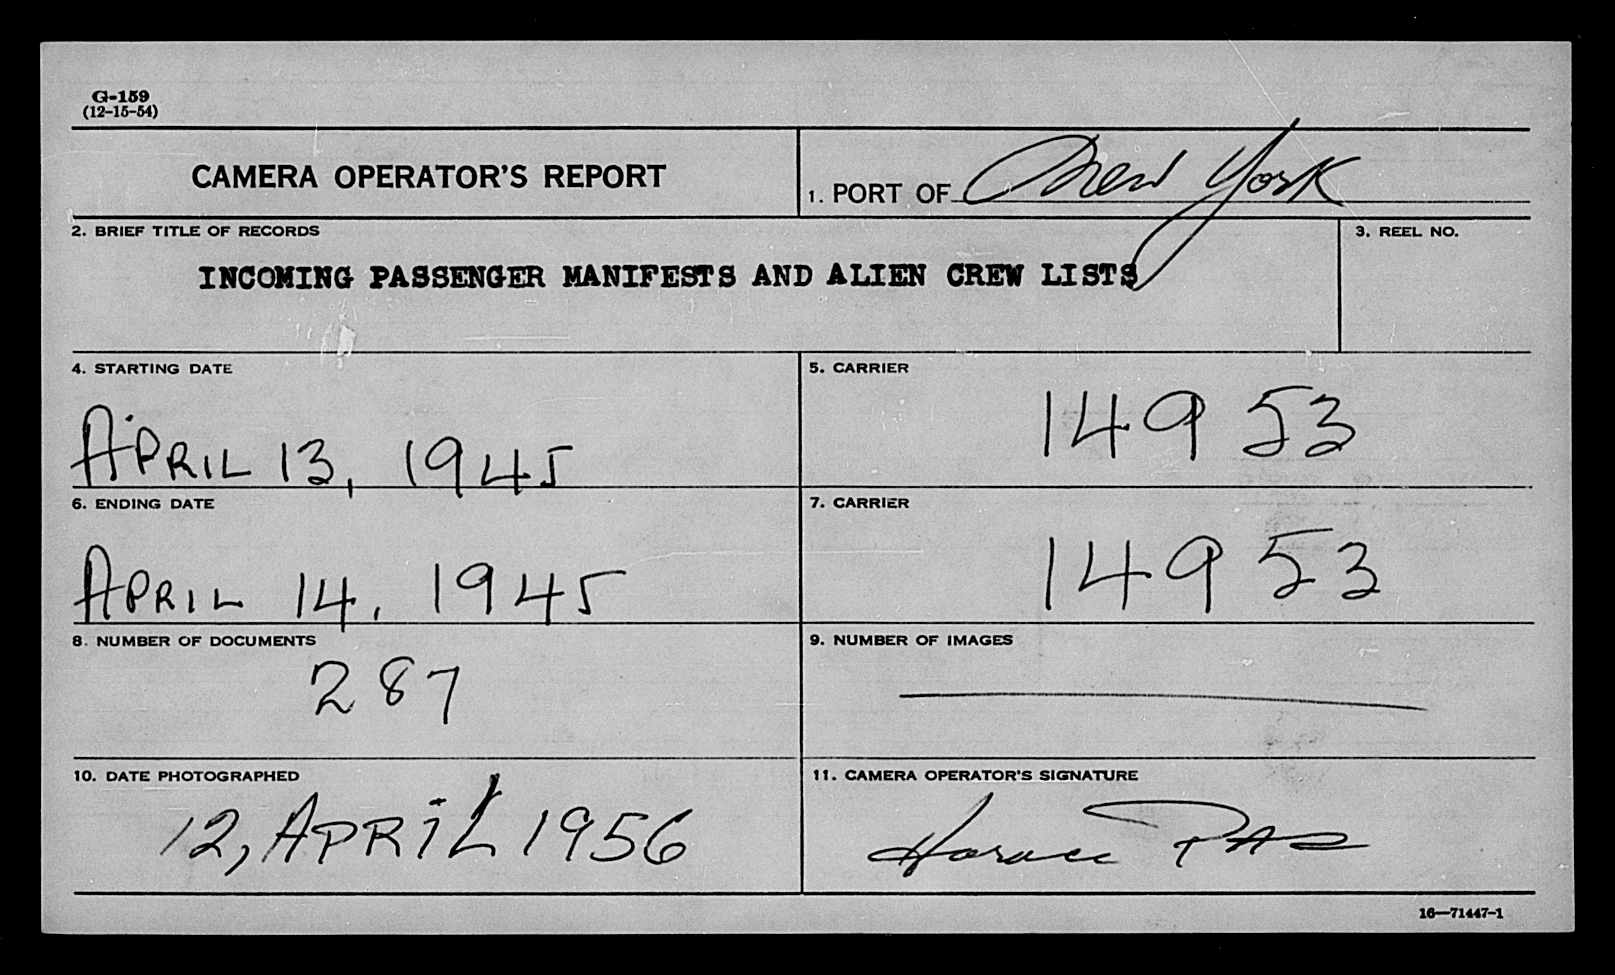 G-159
(12-15-54)
CAMERA OPERATOR'S REPORT
1. PORT OF New York
2. BRIEF TITLE OF RECORDS
INCOMING PASSENGER MANIFESTS AND ALIEN CREW LISTS
3. REEL NO.
4. STARTING DATE
APRIL 13, 1945
5. CARRIER
14953
6. ENDING DATE
APRIL 14, 1945
7. CARRIER
14953
8. NUMBER OF DOCUMENTS
287
9. NUMBER OF IMAGES
10. DATE PHOTOGRAPHED
12, APRIL 1956
11. CAMERA OPERATOR'S SIGNATURE
Horace
16—71447-1